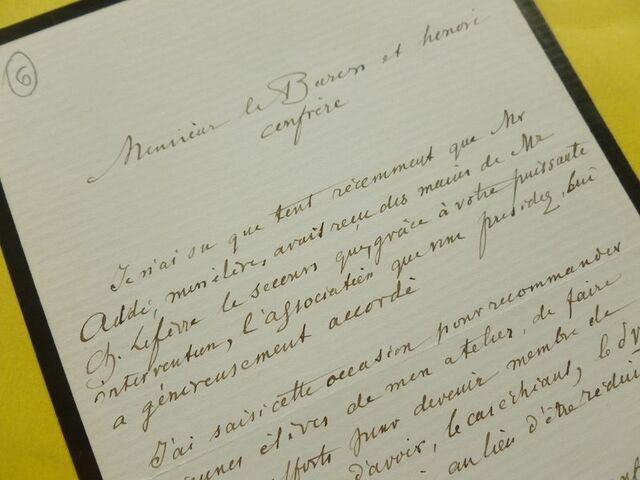 6
Monsieur le Baron et honoré
confrère
Je n'ai su que tout récemment que Mr
Addé, mon élève, avait reçu des mains de Mr
Ch. Lefèvre le secours que, grâce à votre puissante
intervention, l'association que vous présidez, lui
a généreusement accordé
J'ai saisi cette occasion pour recommander
jeunes élèves de mon atelier, de faire
efforts pour devenir membre de
d'avoir, le cas échéant, le d
au lieu d'être réduit